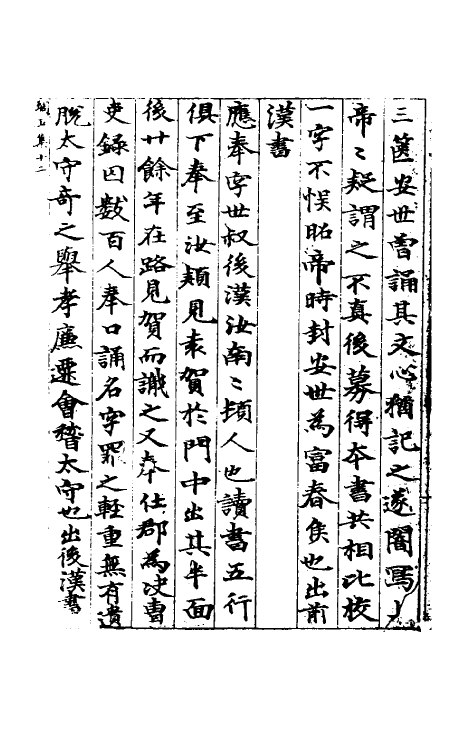 三篋安世嘗誦其文心猶記之遂闇寫上
帝〻疑謂之不真後募得本書共相比校
一字不悮昭帝時封安世為富春侯也出前
漢書
應奉字世叔後漢汝南〻頓人也讀書五行
俱下奉至汝潁見袁賀於門中出其半面
後廿餘年在路見賀而識之又奉仕郡為决曹
史錄囚數百人奉口誦名字罪之輕重無有遺
脫太守奇之舉孝廉遷會稽太守也出後漢書
琱玉集十二